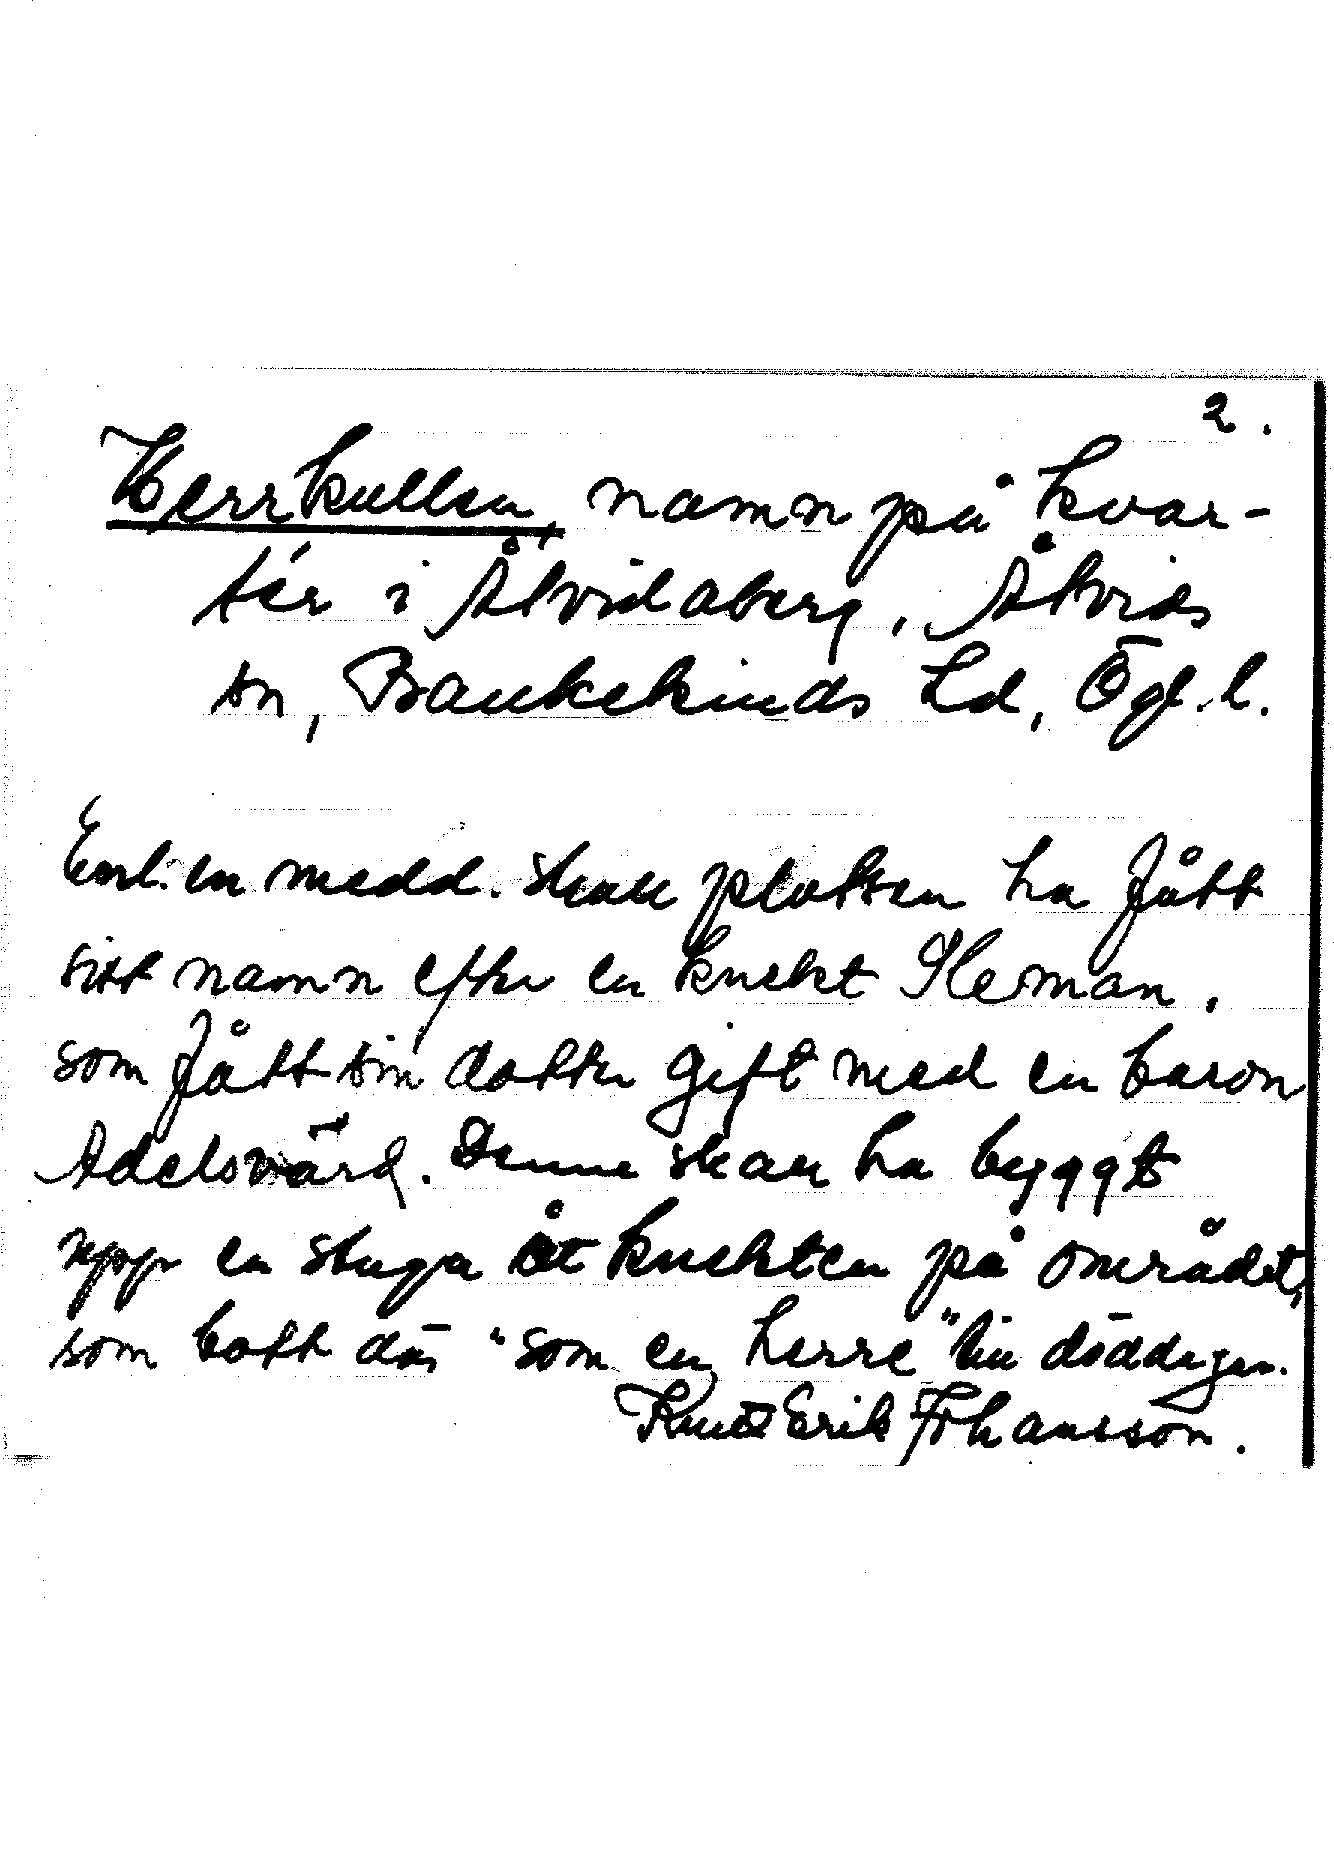 2.
Herrkullen, namn på kvar-
tér i Åtvidaberg, Åtvids
sn, Bankekinds hd, Ögl. l.
Enl. en medd. skall platsen ha fått
sitt namn efter en knekt Heman,
som fått sin dotter gift med en baron
Adelsvärd. Denne skall ha byggt
upp en stuga åt knekten på området,
som bott där "som en herre" till dödedagar.
Knut Erik Johansson.